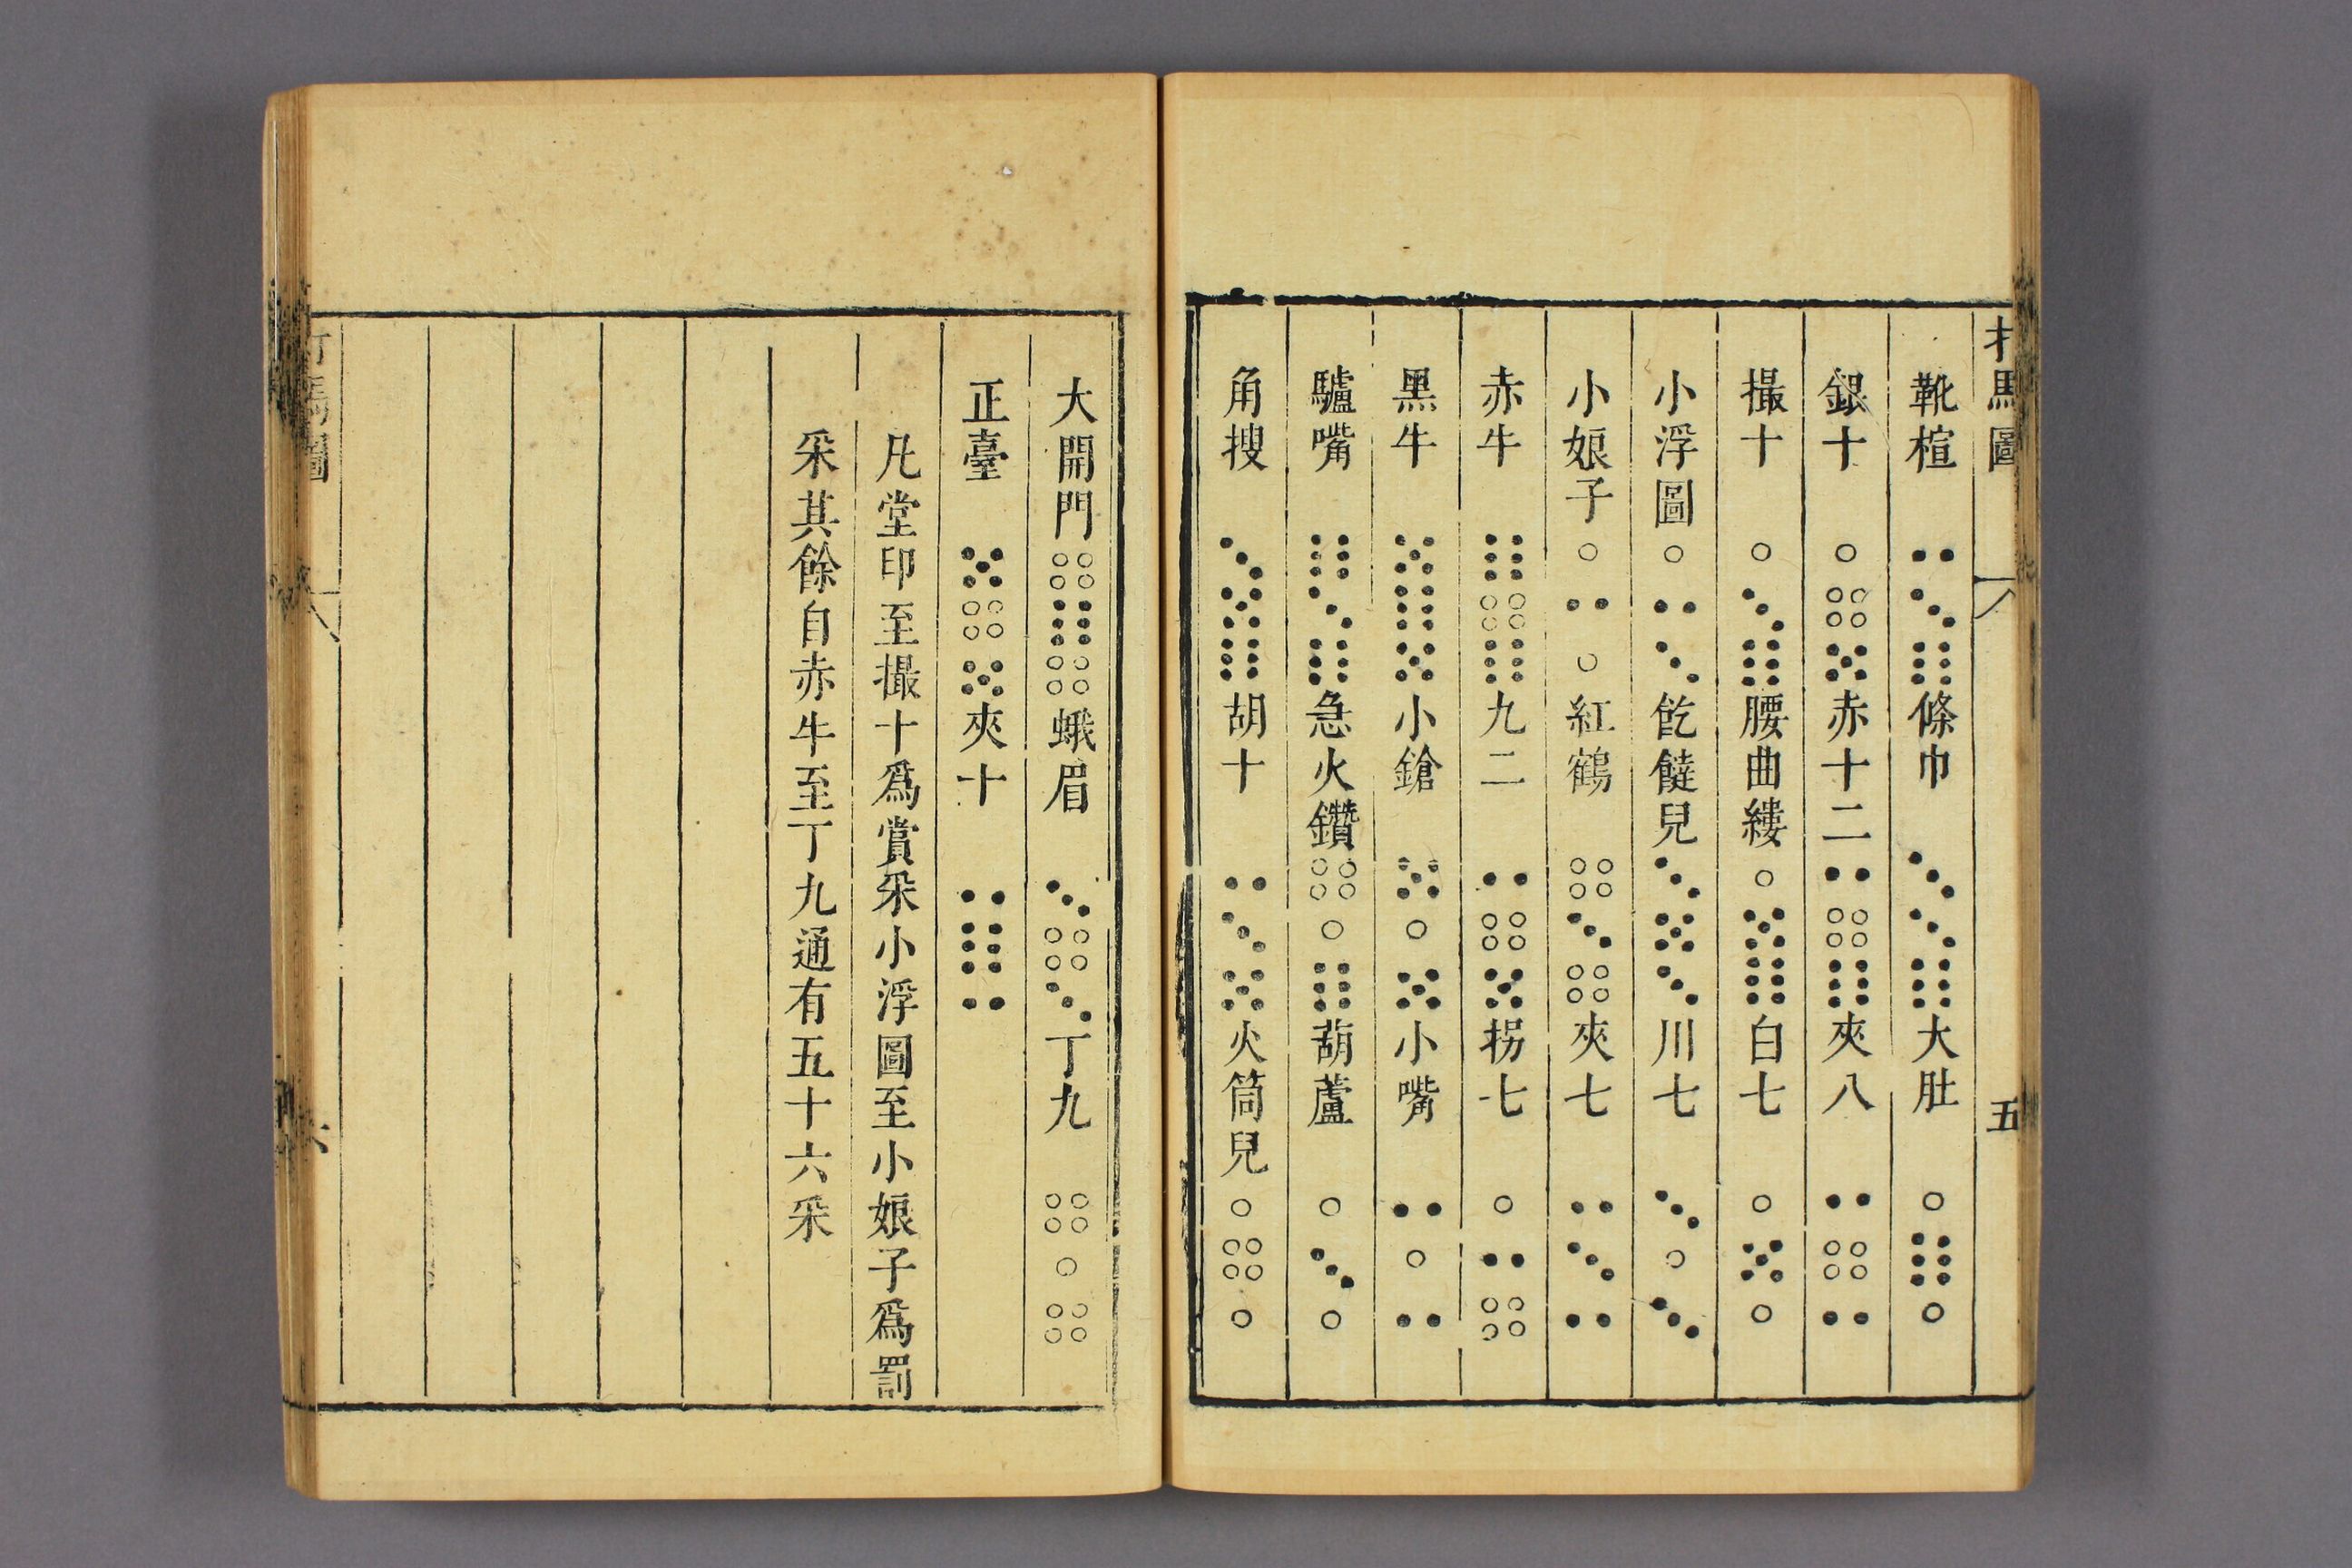 打馬圖 五
靴楦 條巾 大肚
銀十 赤十二 夾八
撮十 腰曲縷 白七
小浮圖 飥饒兒 川七
小娘子 紅鶴 夾七
赤牛 九二 拐七
黑牛 小鎗 小嘴
驢嘴 急火鑽 葫蘆
角搜 胡十 火筒兒
大開門 蛾眉 丁九
正臺 夾十
凡堂印至撮十爲賞采小浮圖至小娘子爲罰
采其餘自赤牛至丁九通有五十六采
打馬圖 六